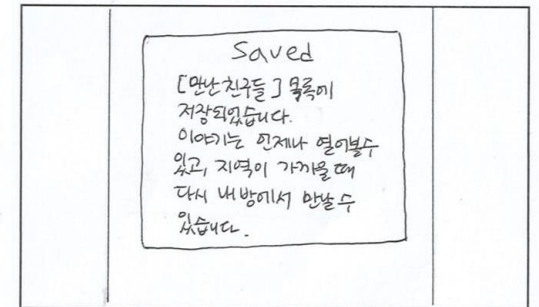 Saved
[만난친구들] 목록에
저장되었습니다.
이야기는 언제나 열어볼수
있고, 지역이 가까울때
다시 내방에서 만날수
있습니다.